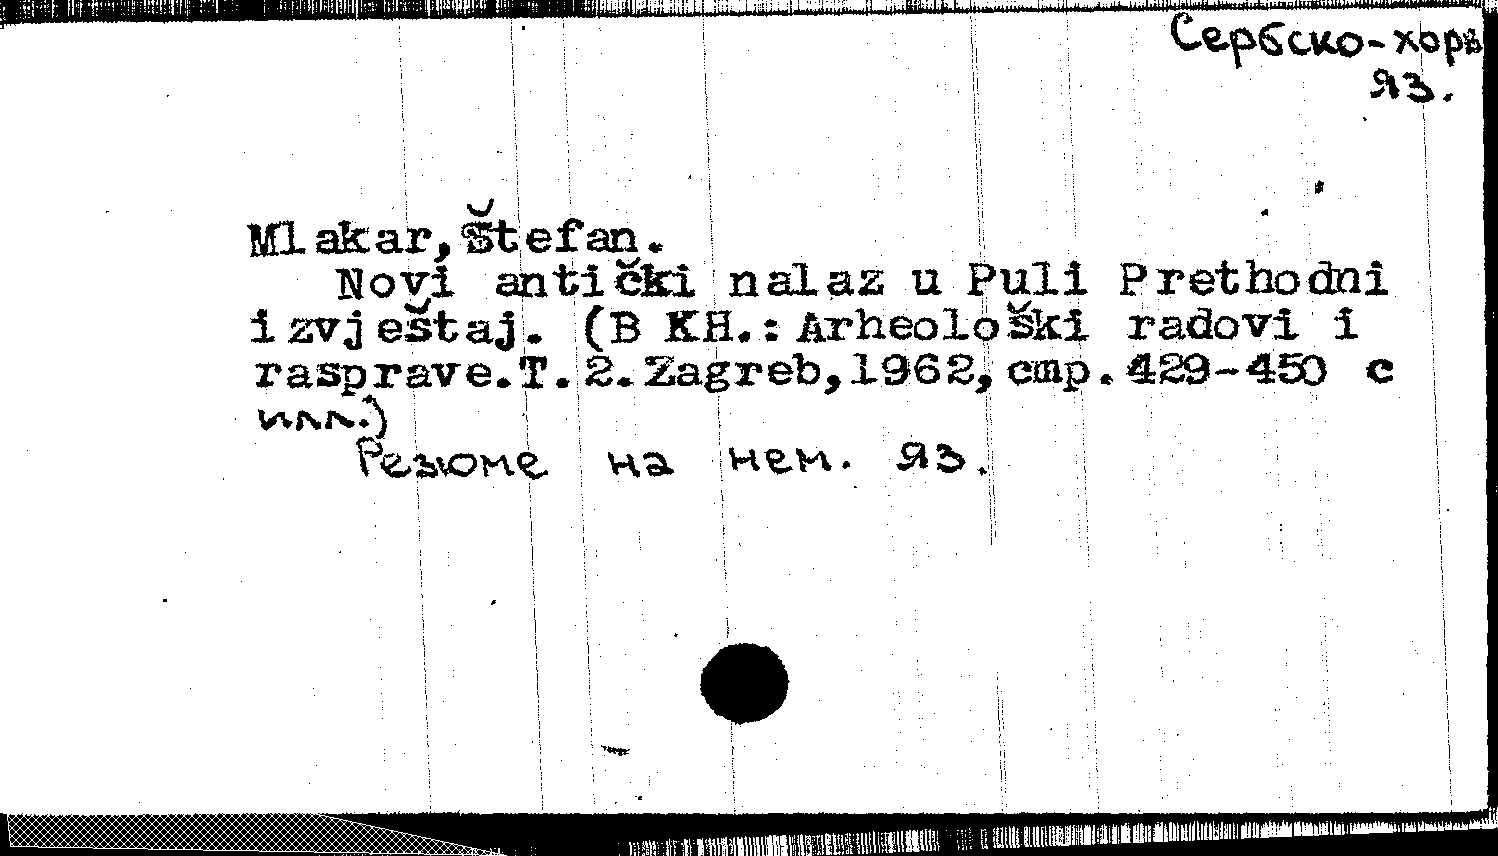 Сербско-хорв
яз.
Mlakar, Štefan.
Novi antički nalaz u Puli Prethodni
izvještaj. (В КН.: Arheološki radovi i
rasprave. T. 2. Zagreb, 1962, стр. 429-450 с
илл.)
Резюме на нем. яз.